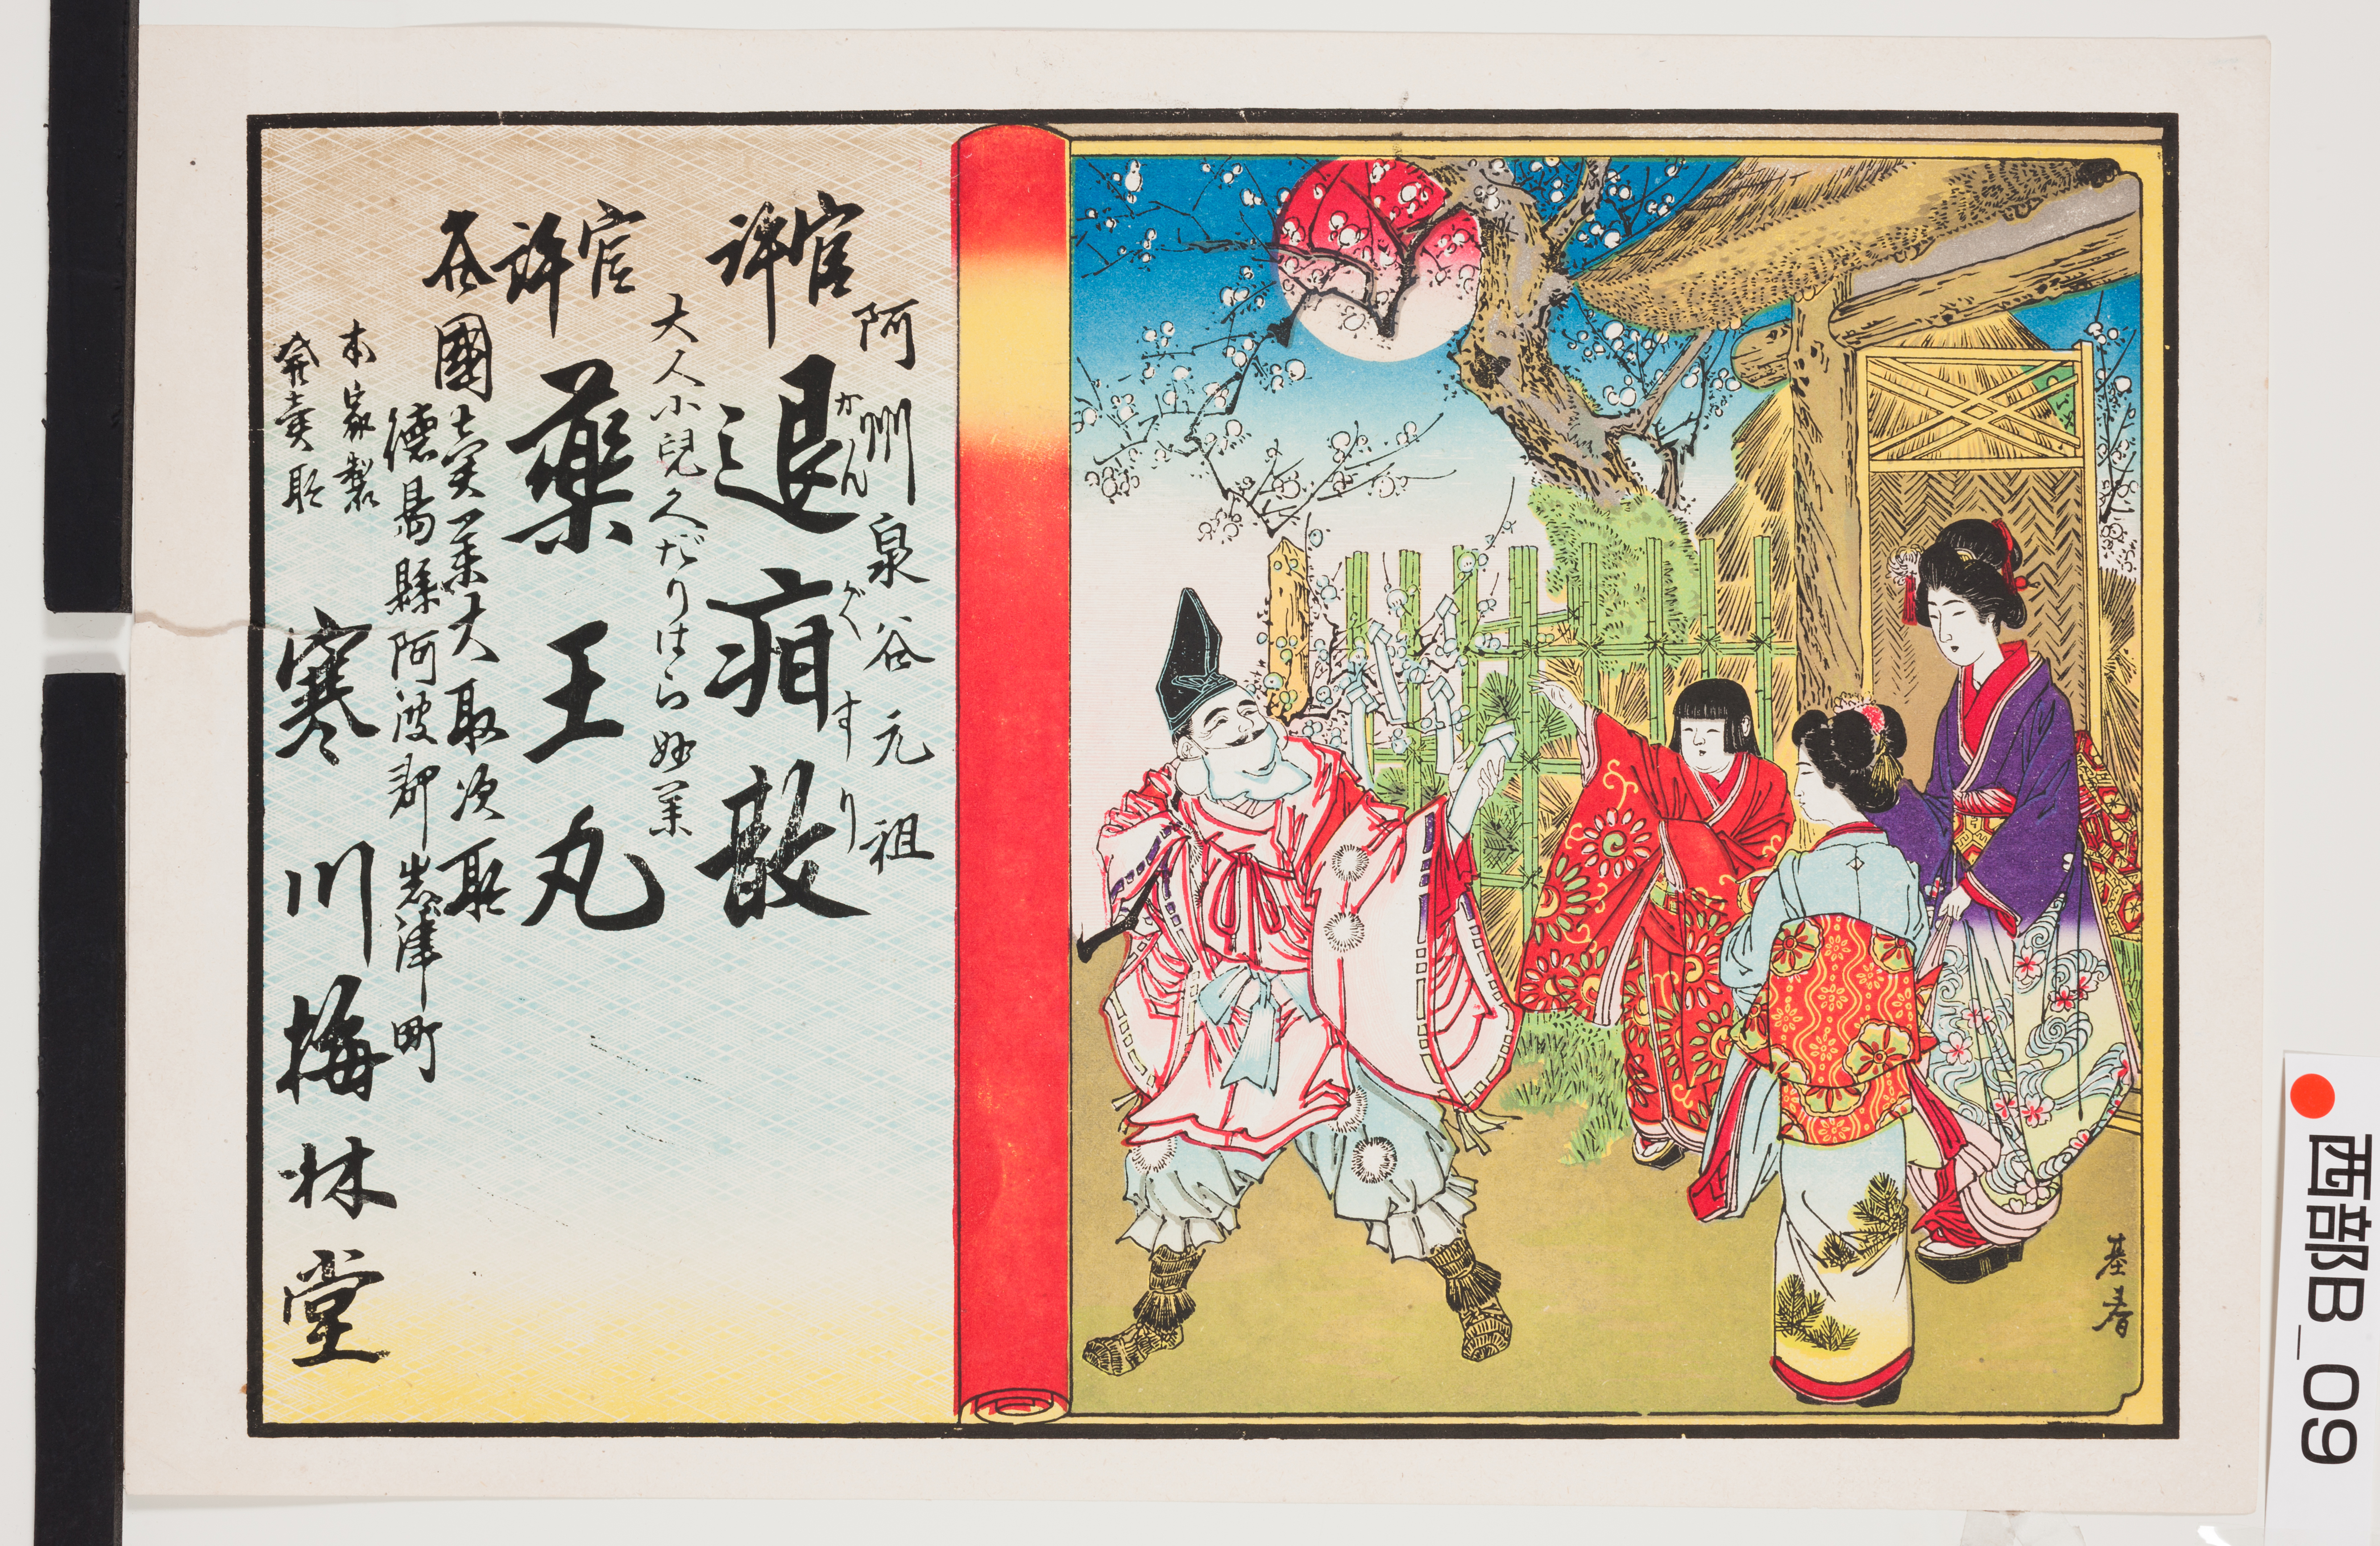 阿州泉谷元祖
官許
退疳散
かんがくすり
大人小児久だりはら妙薬
官許
薬王丸
各國売薬大取次所
徳島縣阿波郡岩津町
本家製
発賣所
寒川梅林堂
基春
西部B_09